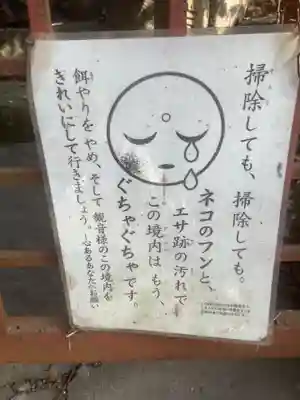 掃除しても、掃除しても。
ネコのフンと、
エサ跡の汚れで
この境内はもう、
ぐちゃぐちゃです。
餌やりをやめ、そして観音様のこの境内を
きれいにして行きましょう。―心あるあなたへのお願い